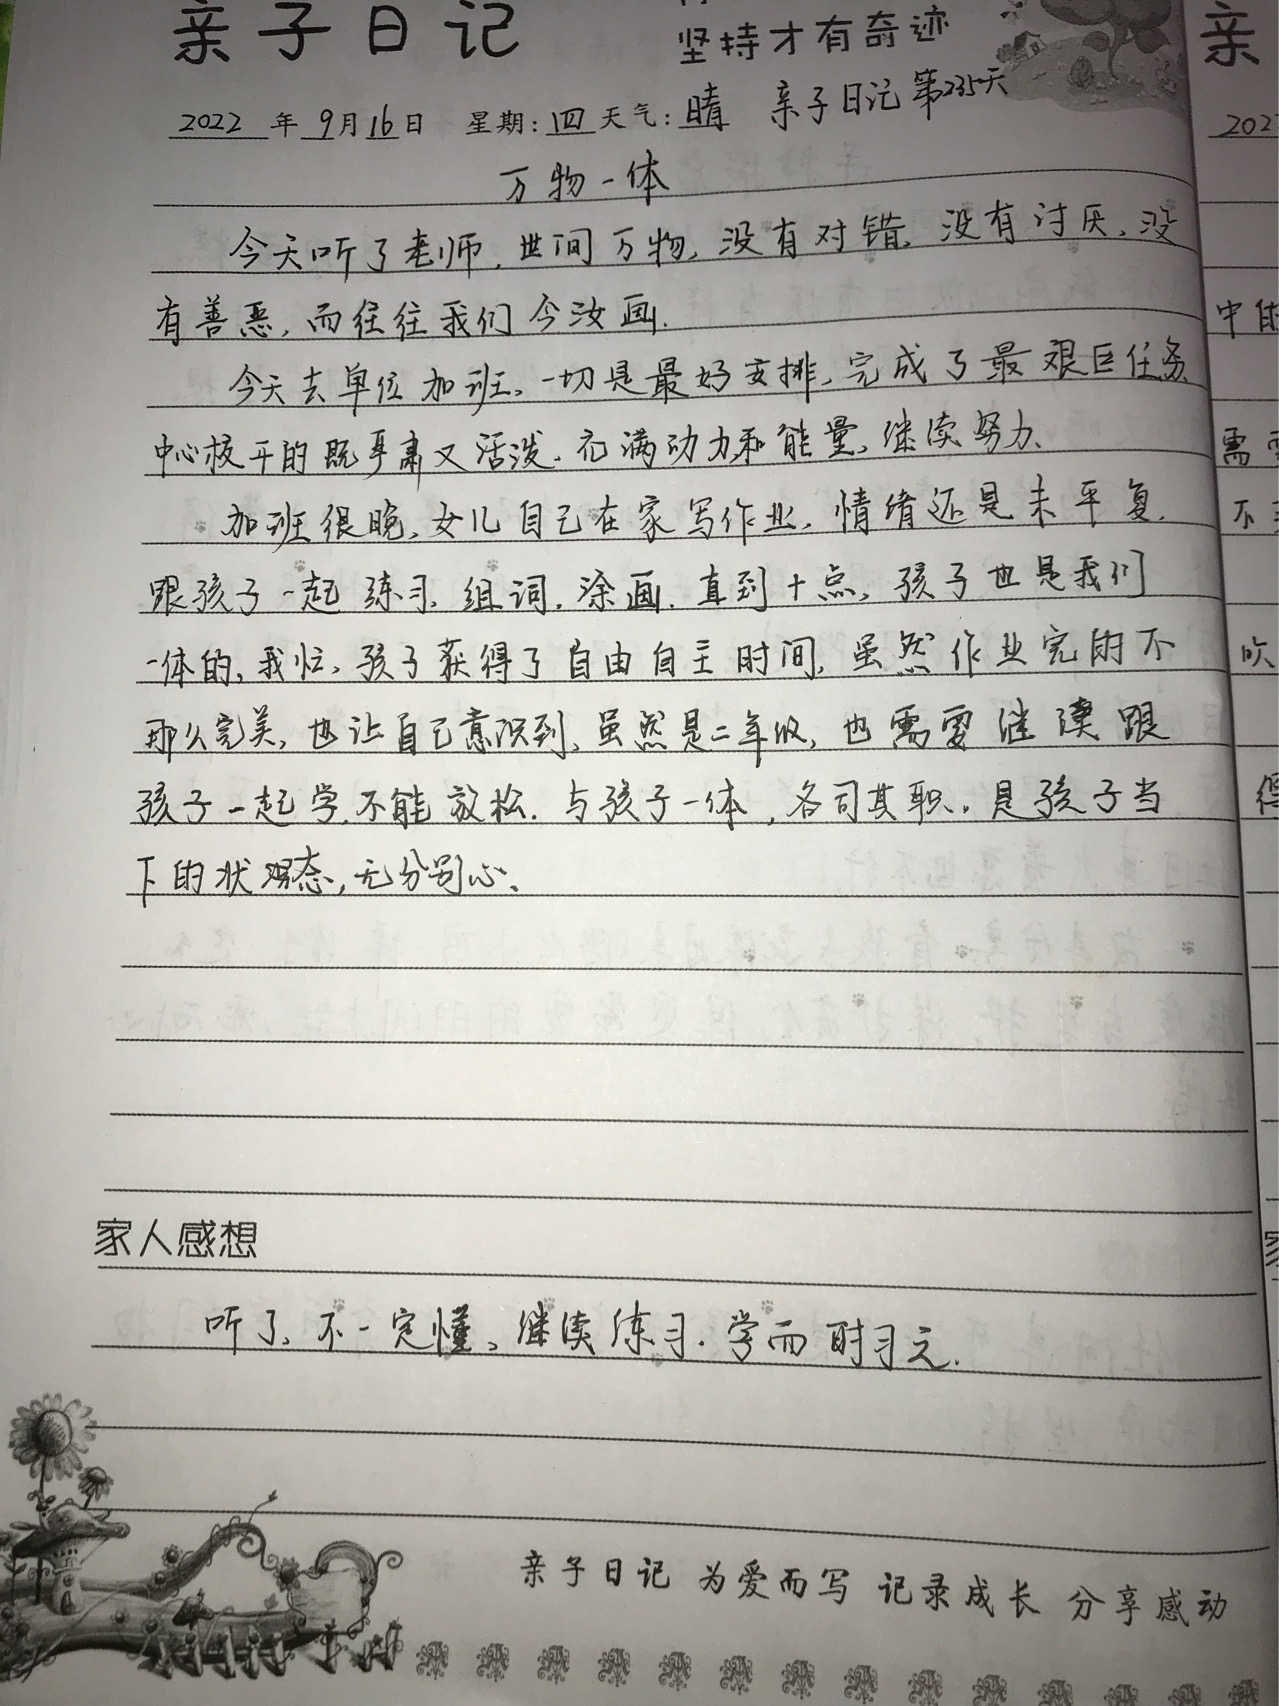 亲子日记
坚持才有奇迹
亲
2022年9月16日 星期:四 天气:晴 亲子日记第235天
202
万物一体
今天听了老师,世间万物,没有对错,没有讨厌,没
有善恶,而往往我们今汝画.
中
今天去单位加班,一切是最好安排,完成了最艰巨任务
中心校干的既严肃又活泼.充满动力和能量,继续努力、
需
加班很晚,女儿自己在家写作业,情绪还是未平复.
不
跟孩子一起练习,组词,涂画.直到十点,孩子也是我们
一体的,我忙,孩子获得了自由自主时间,虽然作业完的不
吹
那么完美,也让自己意识到,虽然是二年级,也需要继续跟
孩子一起学,不能放松.与孩子一体,各司其职,是孩子当
得
下的状态,无分别心、
家人感想
听了,不一定懂,继续练习.学而时习之.
亲子日记 为爱而写 记录成长 分享感动